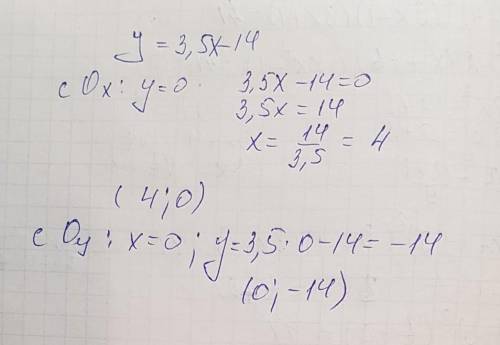 y = 3,5x-14
с Ox: y=0 3,5x -14=0
3,5x = 14
x= 14/3,5 = 4
(4;0)
с Oy: x=0; y=3,5·0-14= -14
(0; -14)